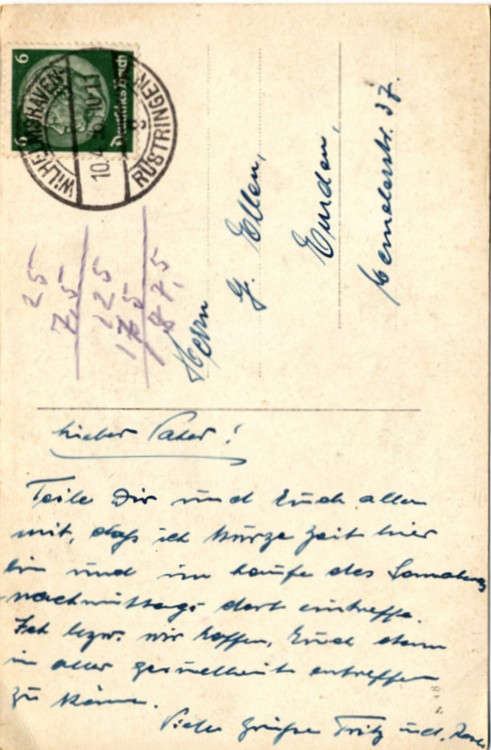 6
6
Deutsches Reich
WILHELMSHAVEN-
RÜSTRINGEN
10.4.
Herrn
J. Ellen,
Emden,
37.
25
7,5
125
175
87,5
Lieber Vater!
Teile Dir und Euch allen
mit, daß ich kurze Zeit hier
bin und im Laufe des Sonnabend
nachmittags dort eintreffe.
Ich bzw. wir hoffen, Euch dann
in aller Gesundheit antreffen
zu können.
Viele Grüße Fritz und